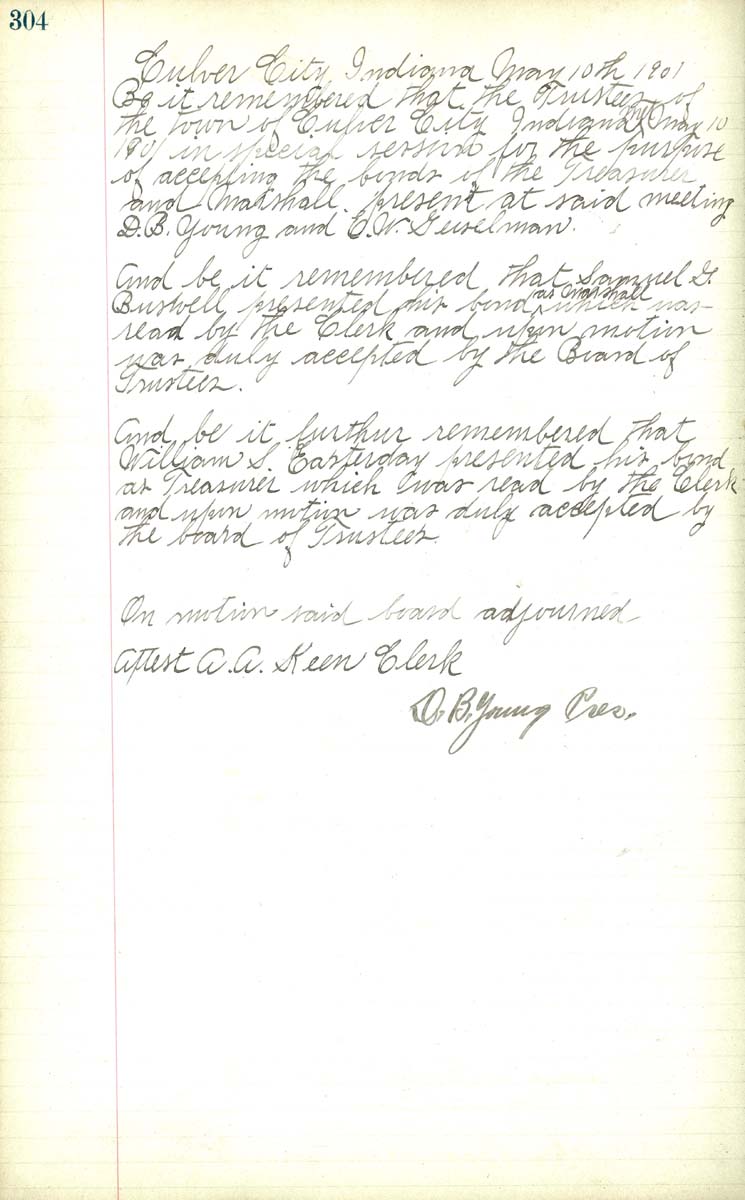 304
Culver City, Indiana May 10th 1901
Be it remembered that the Trustees of
the town of Culver City Indiana met May 10
1901 in special session for the purpose
of accepting the bonds of the Treasurer
and Marshall. present at said meeting
D.B. Young and E.W. Geiselman.
And be it remembered that Samuel G.
Buswell presented his bond as Marshall which was
read by the Clerk and upon motion
was duly accepted by the Board of
Trustees.
And be it furthur remembered that
William S. Easterday presented his bond
as Treasurer which was read by the Clerk
and upon motion was duly accepted by
the board of Trustees.
On motion said board adjourned
Attest A.A. Keen Clerk
D.B. Young Pres.